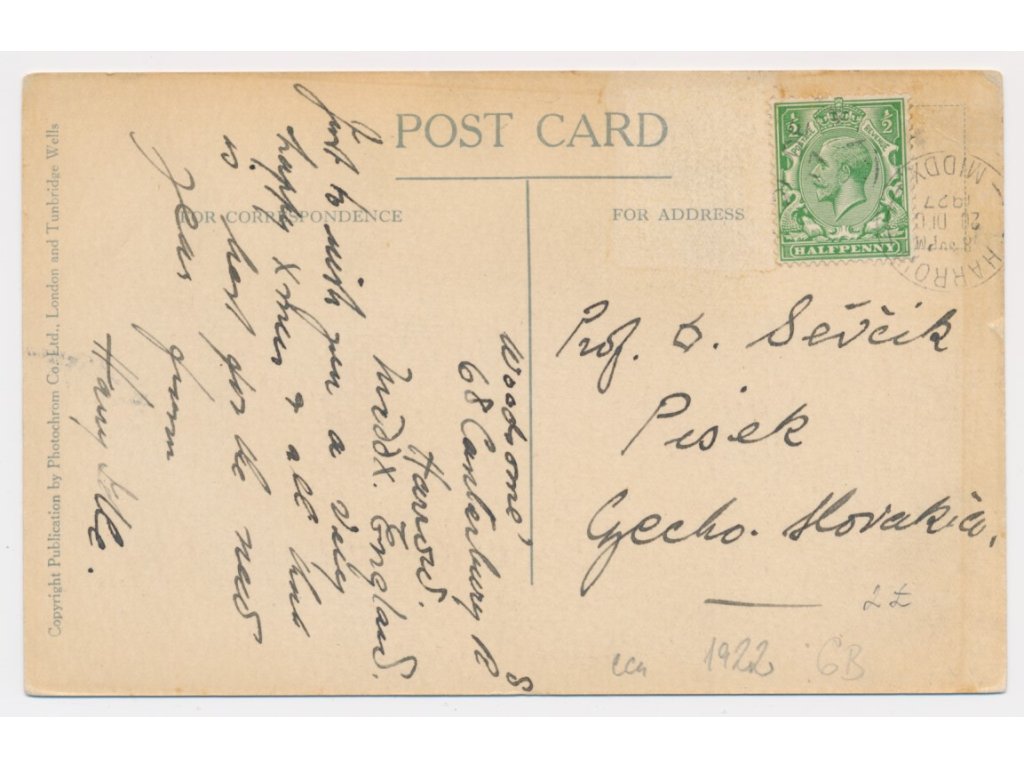 POST CARD
FOR CORRESPONDENCE
FOR ADDRESS
Copyright Publication by Photochrom Co., Ltd., London and Tunbridge Wells
½ ½
HALFPENNY
HARROW
8 PM
20 DEC
1927
MIDDX
"Woodrome",
68 Canterbury R
Harrow.
Middx. England.
Just to wish you a very
happy Xmas & all that
is best for the new
year
from
Prof. O. Ševčik
Pisek
Czecho-Slovakia.
1922 GB